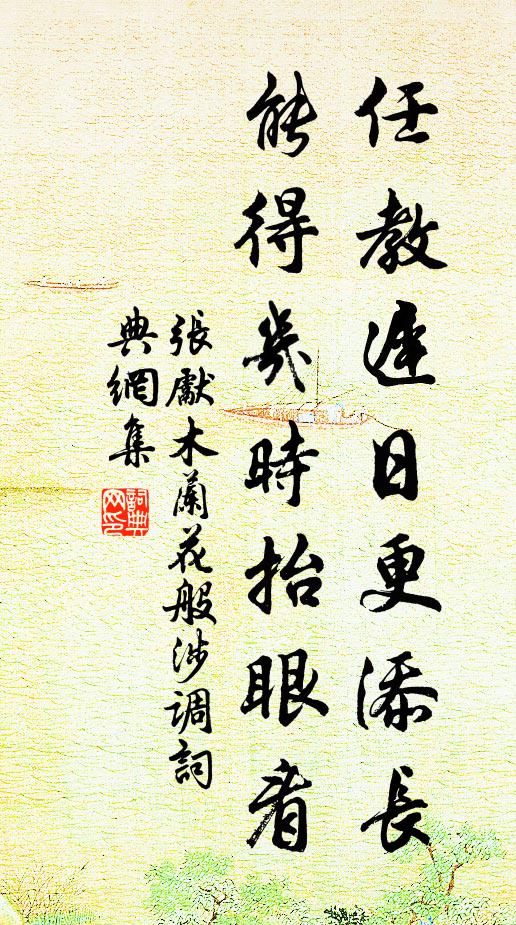 任教遲日更添長
能得幾時抬眼看
張獻木蘭花般涉調詞
典網集
詞典網印